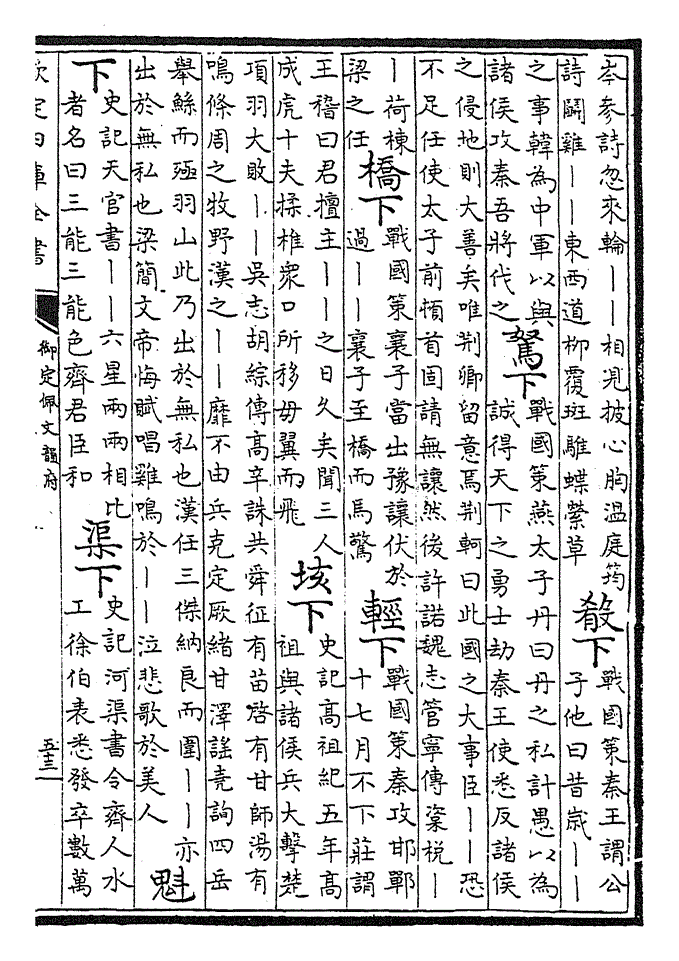 岑參詩忽來輪丨丨相見披心胸溫庭筠
詩鬬雞丨丨東西道柳覆斑騅蝶縈草
殽下
戰國策秦王謂公
子他曰昔歲丨丨
之事韓為中軍以與
諸侯攻秦吾將代之
駑下
戰國策燕太子丹曰丹之私計愚以為
誠得天下之勇士劫秦王使悉反諸侯
之侵地則大善矣唯荆卿留意焉荆軻曰此國之大事臣丨丨恐
不足任使太子前頓首固請無讓然後許諾魏志管寧傳楶梲丨
丨荷棟
梁之任
橋下
戰國策襄子當出豫讓伏於
過丨丨襄子至橋而馬驚
輕下
戰國策秦攻邯鄲
十七月不下莊謂
王稽曰君擅主丨丨之日久矣聞三人
成虎十夫揉椎衆口所移毋翼而飛
垓下
史記高祖紀五年高
祖與諸侯兵大擊楚
項羽大敗丨丨吳志胡綜傳高辛誅共舜征有苗啓有甘師湯有
鳴條周之牧野漢之丨丨靡不由兵克定厥緒甘澤謠堯詢四岳
舉鯀而殛羽山此乃出於無私也漢任三傑納良而圍丨丨亦
出於無私也梁簡文帝悔賦唱雞鳴於丨丨泣悲歌於美人
魁
下
史記天官書丨丨六星兩兩相比
者名曰三能三能色齊君臣和
渠下
史記河渠書令齊人水
工徐伯表悉發卒數萬
欽定四庫全書
御定佩文韻府